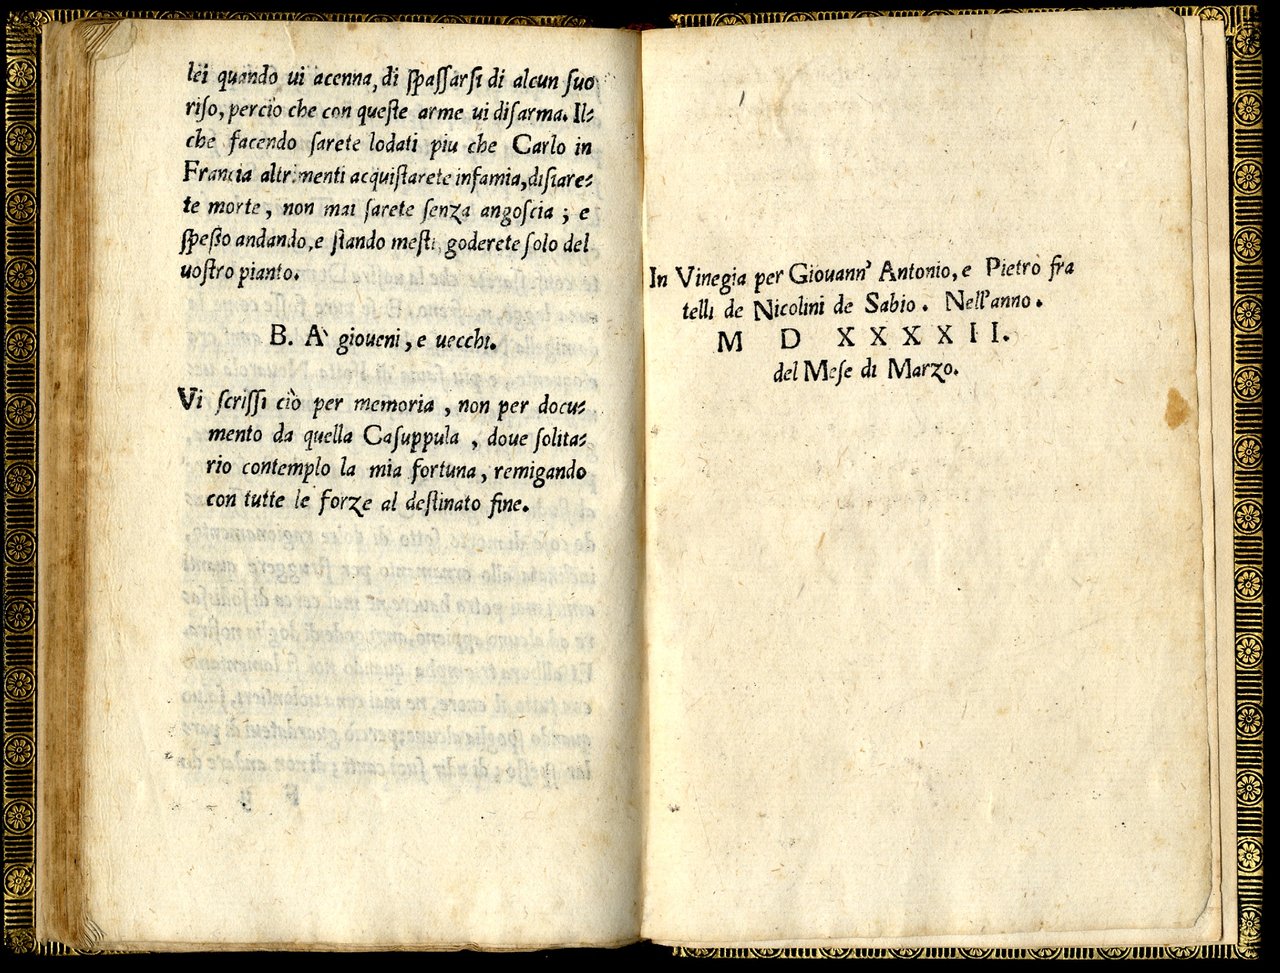 lei quando ui acenna, di ſpaſſarſi di alcun ſuo
riſo, perciò che con queſte arme ui diſarma. Il⸗
che facendo ſarete lodati piu che Carlo in
Francia altrimenti acquiſtarete infamia, diſiare⸗
te morte, non mai ſarete ſenza angoſcia; e
ſpeſſo andando, e ſtando meſti, goderete ſolo del
uoſtro pianto.
B. A' gioueni, e uecchi.
Vi ſcriſſi ciò per memoria, non per docu⸗
mento da quella Caſuppula, doue ſolita⸗
rio contemplo la mia fortuna, remigando
con tutte le forze al deſtinato fine.
In Vinegia per Giouann' Antonio, e Pietro fra
telli de Nicolini de Sabio. Nell'anno.
M D XXXXII.
del Meſe di Marzo.